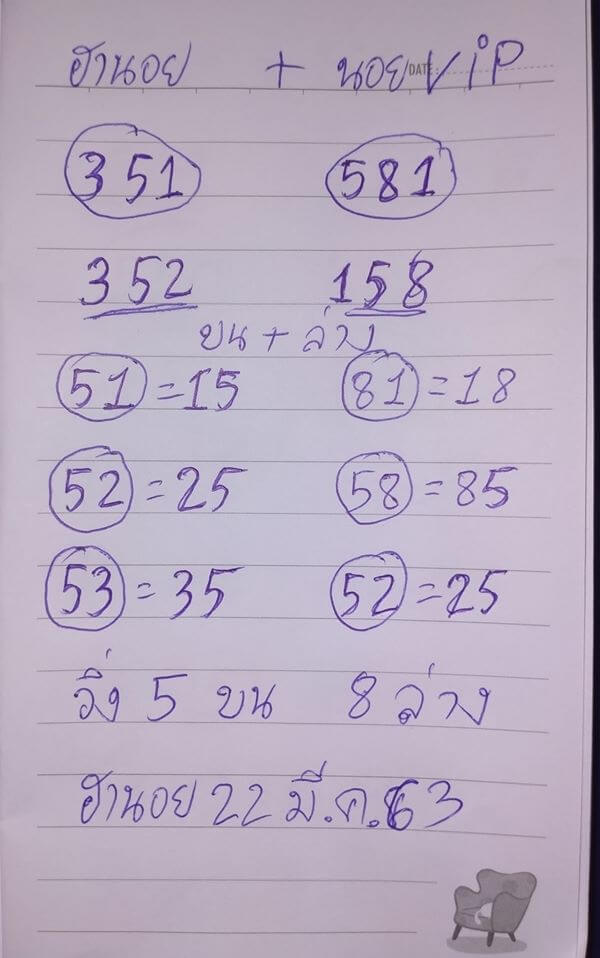 ฮานอย + นอย DATE VIP
351 581
352 158
บน + ล่าง
51 = 15 81 = 18
52 = 25 58 = 85
53 = 35 52 = 25
วิ่ง 5 บน 8 ล่าง
ฮานอย 22 มี.ค.63